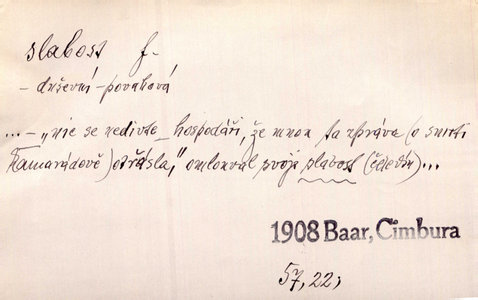 slabost f.
- duševní - povahová
... - „nic se nedivte, hospodáři, že mnou ta zpráva (o smrti
Kamarádově) otřásla," omlouval svoje slabost
1908 Baar, Cimbura
57, 22;